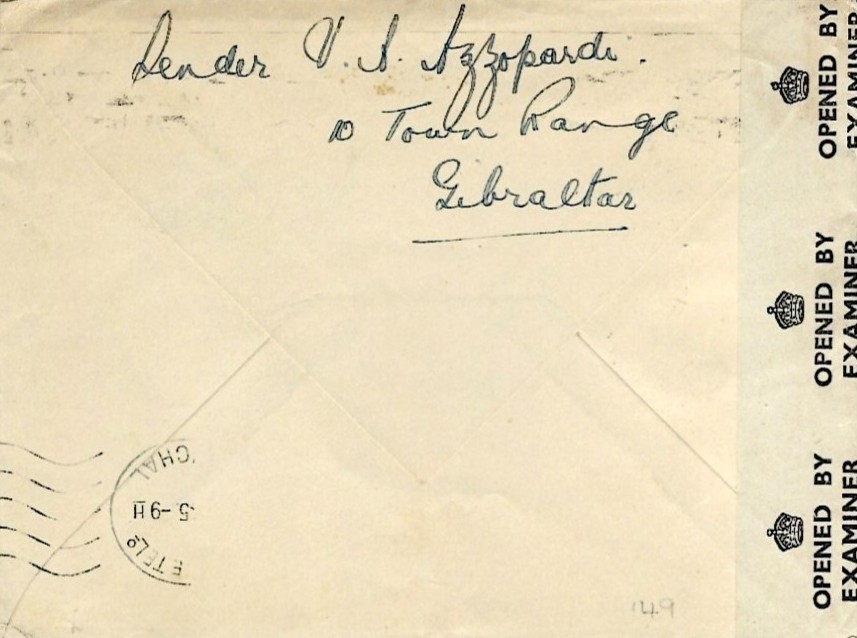 Sender V. S. Azzopardi.
10 Town Range
Gibraltar
OPENED BY
EXAMINER
OPENED BY
EXAMINER
OPENED BY
EXAMINER
CHAL
5.-9H
E TELº
149